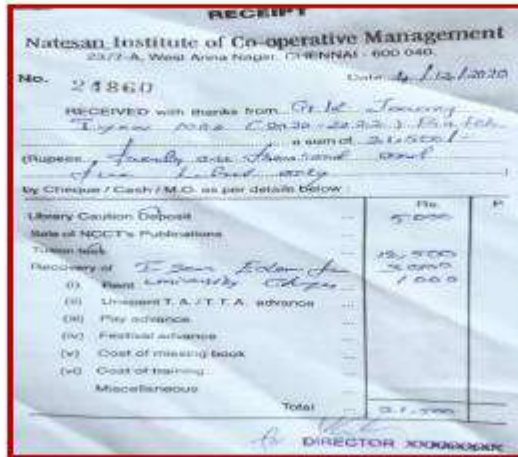 RECEIPT
Natesan Institute of Co-operative Management
23/7-A, West Anna Nagar, CHENNAI - 600 040.
No. 21860 Date 4/12/2020
RECEIVED with thanks from
I year MBA (2020-2022) Batch
a sum of 21,500/-
(Rupees
only )
by Cheque / Cash / M.O. as per details below :
Rs. P.
Library Caution Deposit ... 5000
Sale of NCCT's Publications ...
Tuition fees ... 12,500
Recovery of I Sem Exam fee 3000
(i) Rent University 1000
(ii) Unspent T.A. / T.T.A. advance ...
(iii) Pay advance ...
(iv) Festival advance ...
(v) Cost of missing book ...
(vi) Cost of training ...
Miscellaneous ...
Total ... 21,500
DIRECTOR